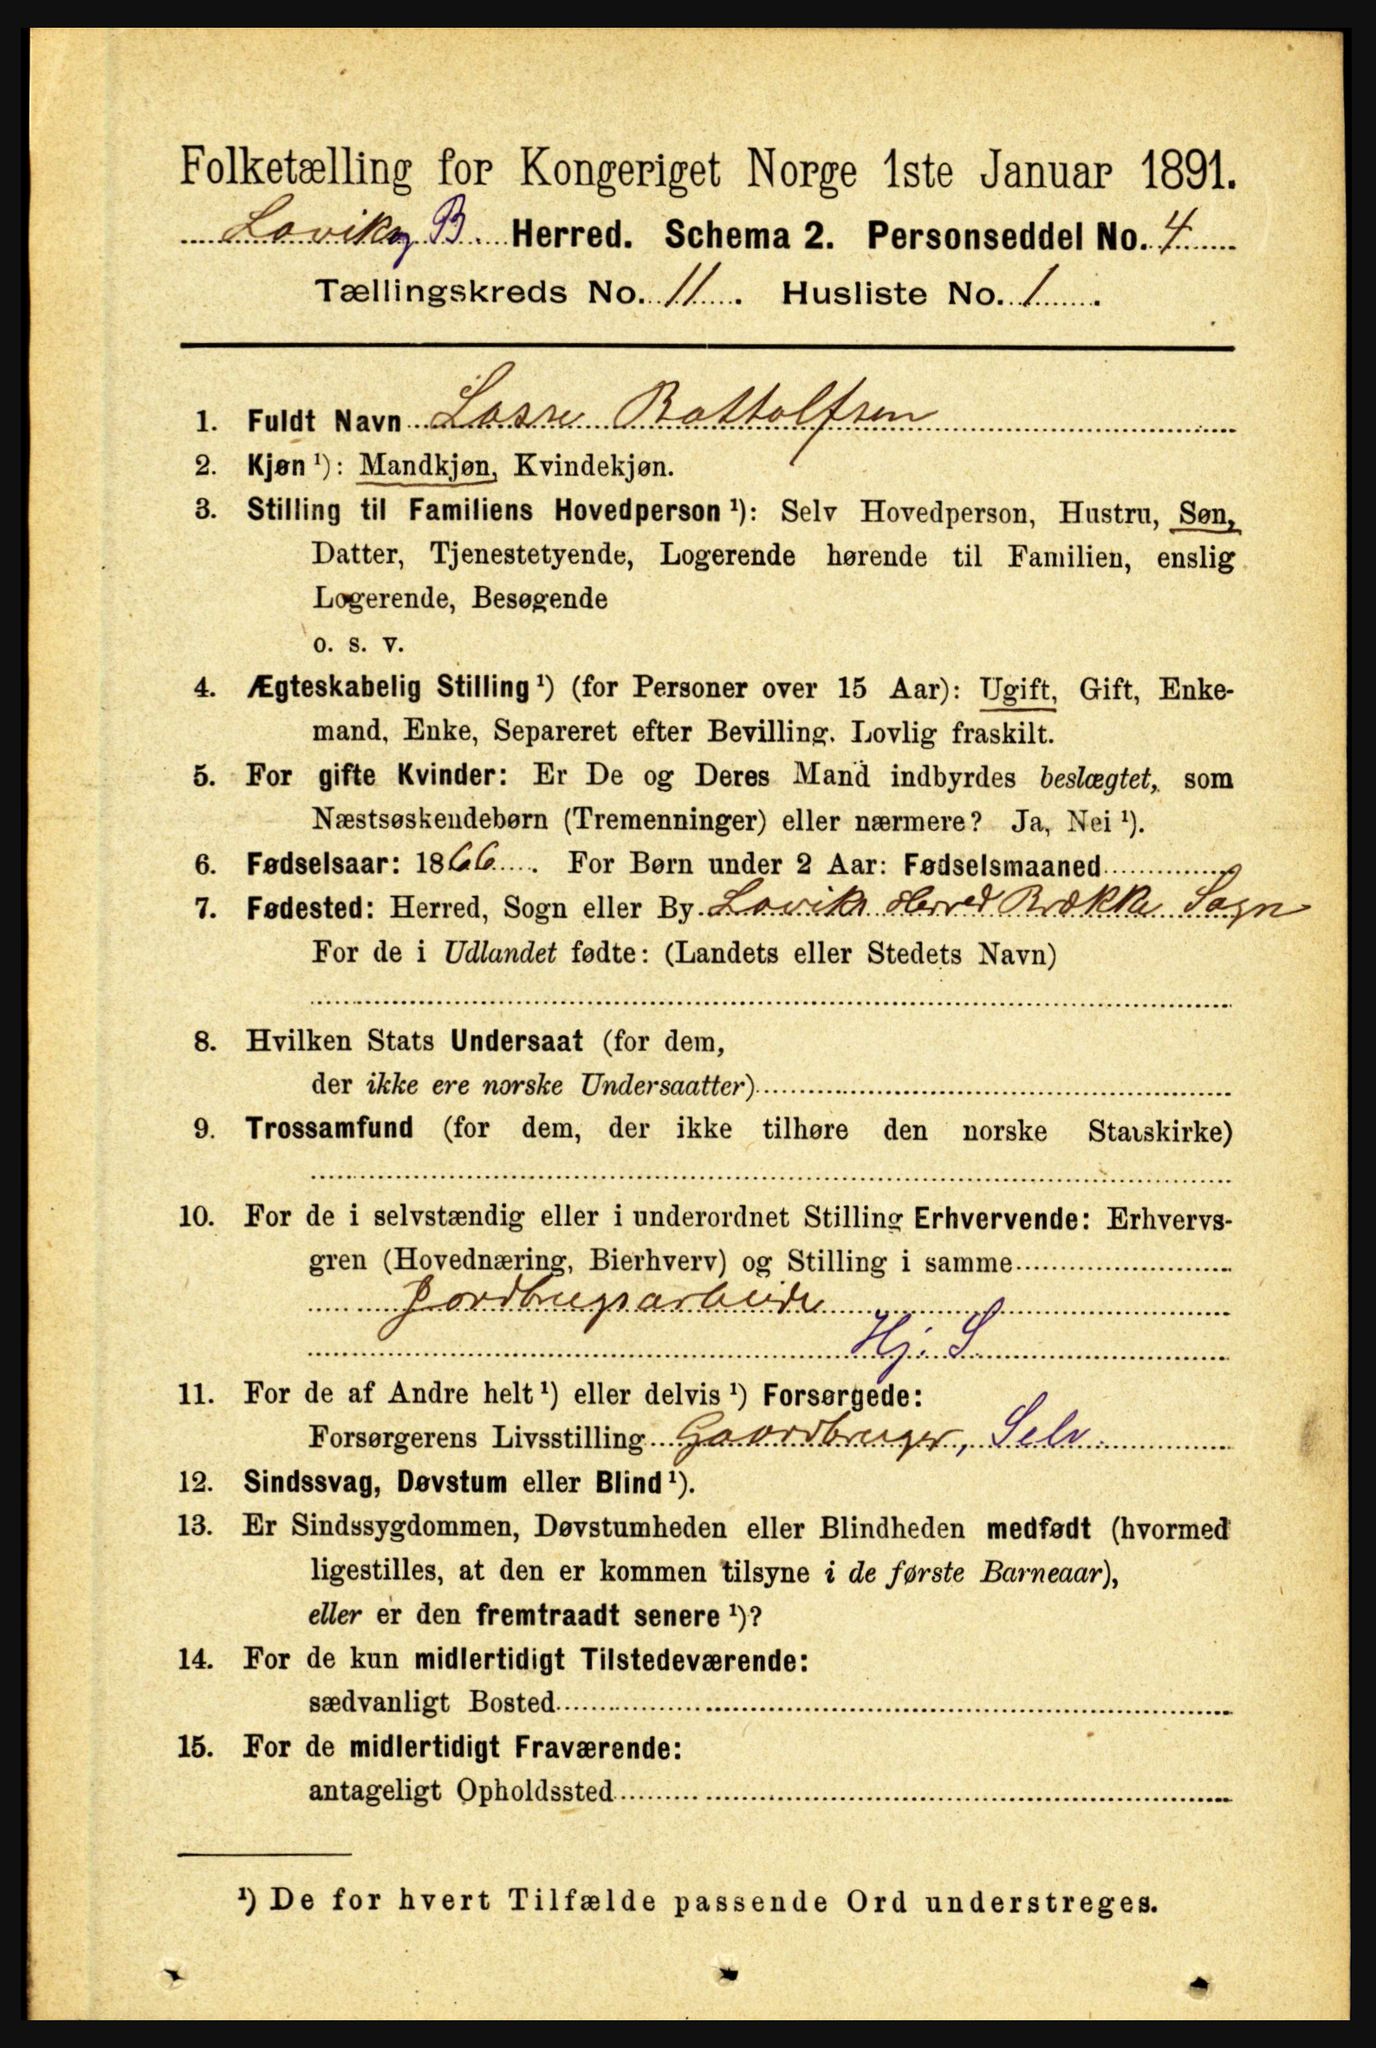 Folketælling for Kongeriget Norge 1ste Januar 1891.
Lavik og B. Herred. Schema 2. Personseddel No. 4
Tællingskreds No. 11. Husliste No. 1.
1. Fuldt Navn Lasse Bottolfsen
2. Kjøn ¹): Mandkjøn, Kvindekjøn.
3. Stilling til Familiens Hovedperson ¹): Selv Hovedperson, Hustru, Søn,
Datter, Tjenestetyende, Logerende hørende til Familien, enslig
Logerende, Besøgende
o. s. v.
4. Ægteskabelig Stilling ¹) (for Personer over 15 Aar): Ugift, Gift, Enke-
mand, Enke, Separeret efter Bevilling. Lovlig fraskilt.
5. For gifte Kvinder: Er De og Deres Mand indbyrdes beslægtet, som
Næstsøskendebørn (Tremenninger) eller nærmere? Ja, Nei ¹).
6. Fødselsaar: 1866. For Børn under 2 Aar: Fødselsmaaned
7. Fødested: Herred, Sogn eller By Laviks Herred Brække Sogn
For de i Udlandet fødte: (Landets eller Stedets Navn)
8. Hvilken Stats Undersaat (for dem,
der ikke ere norske Undersaatter)
9. Trossamfund (for dem, der ikke tilhøre den norske Statskirke)
10. For de i selvstændig eller i underordnet Stilling Erhvervende: Erhvervs-
gren (Hovednæring, Bierhverv) og Stilling i samme
Jordbrugsarbeide
Hj. S
11. For de af Andre helt ¹) eller delvis ¹) Forsørgede:
Forsørgerens Livsstilling Gaardbruger, Selv.
12. Sindssvag, Døvstum eller Blind ¹).
13. Er Sindssygdommen, Døvstumheden eller Blindheden medfødt (hvormed
ligestilles, at den er kommen tilsyne i de første Barneaar),
eller er den fremtraadt senere ¹)?
14. For de kun midlertidigt Tilstedeværende:
sædvanligt Bosted
15. For de midlertidigt Fraværende:
antageligt Opholdssted
¹) De for hvert Tilfælde passende Ord understreges.